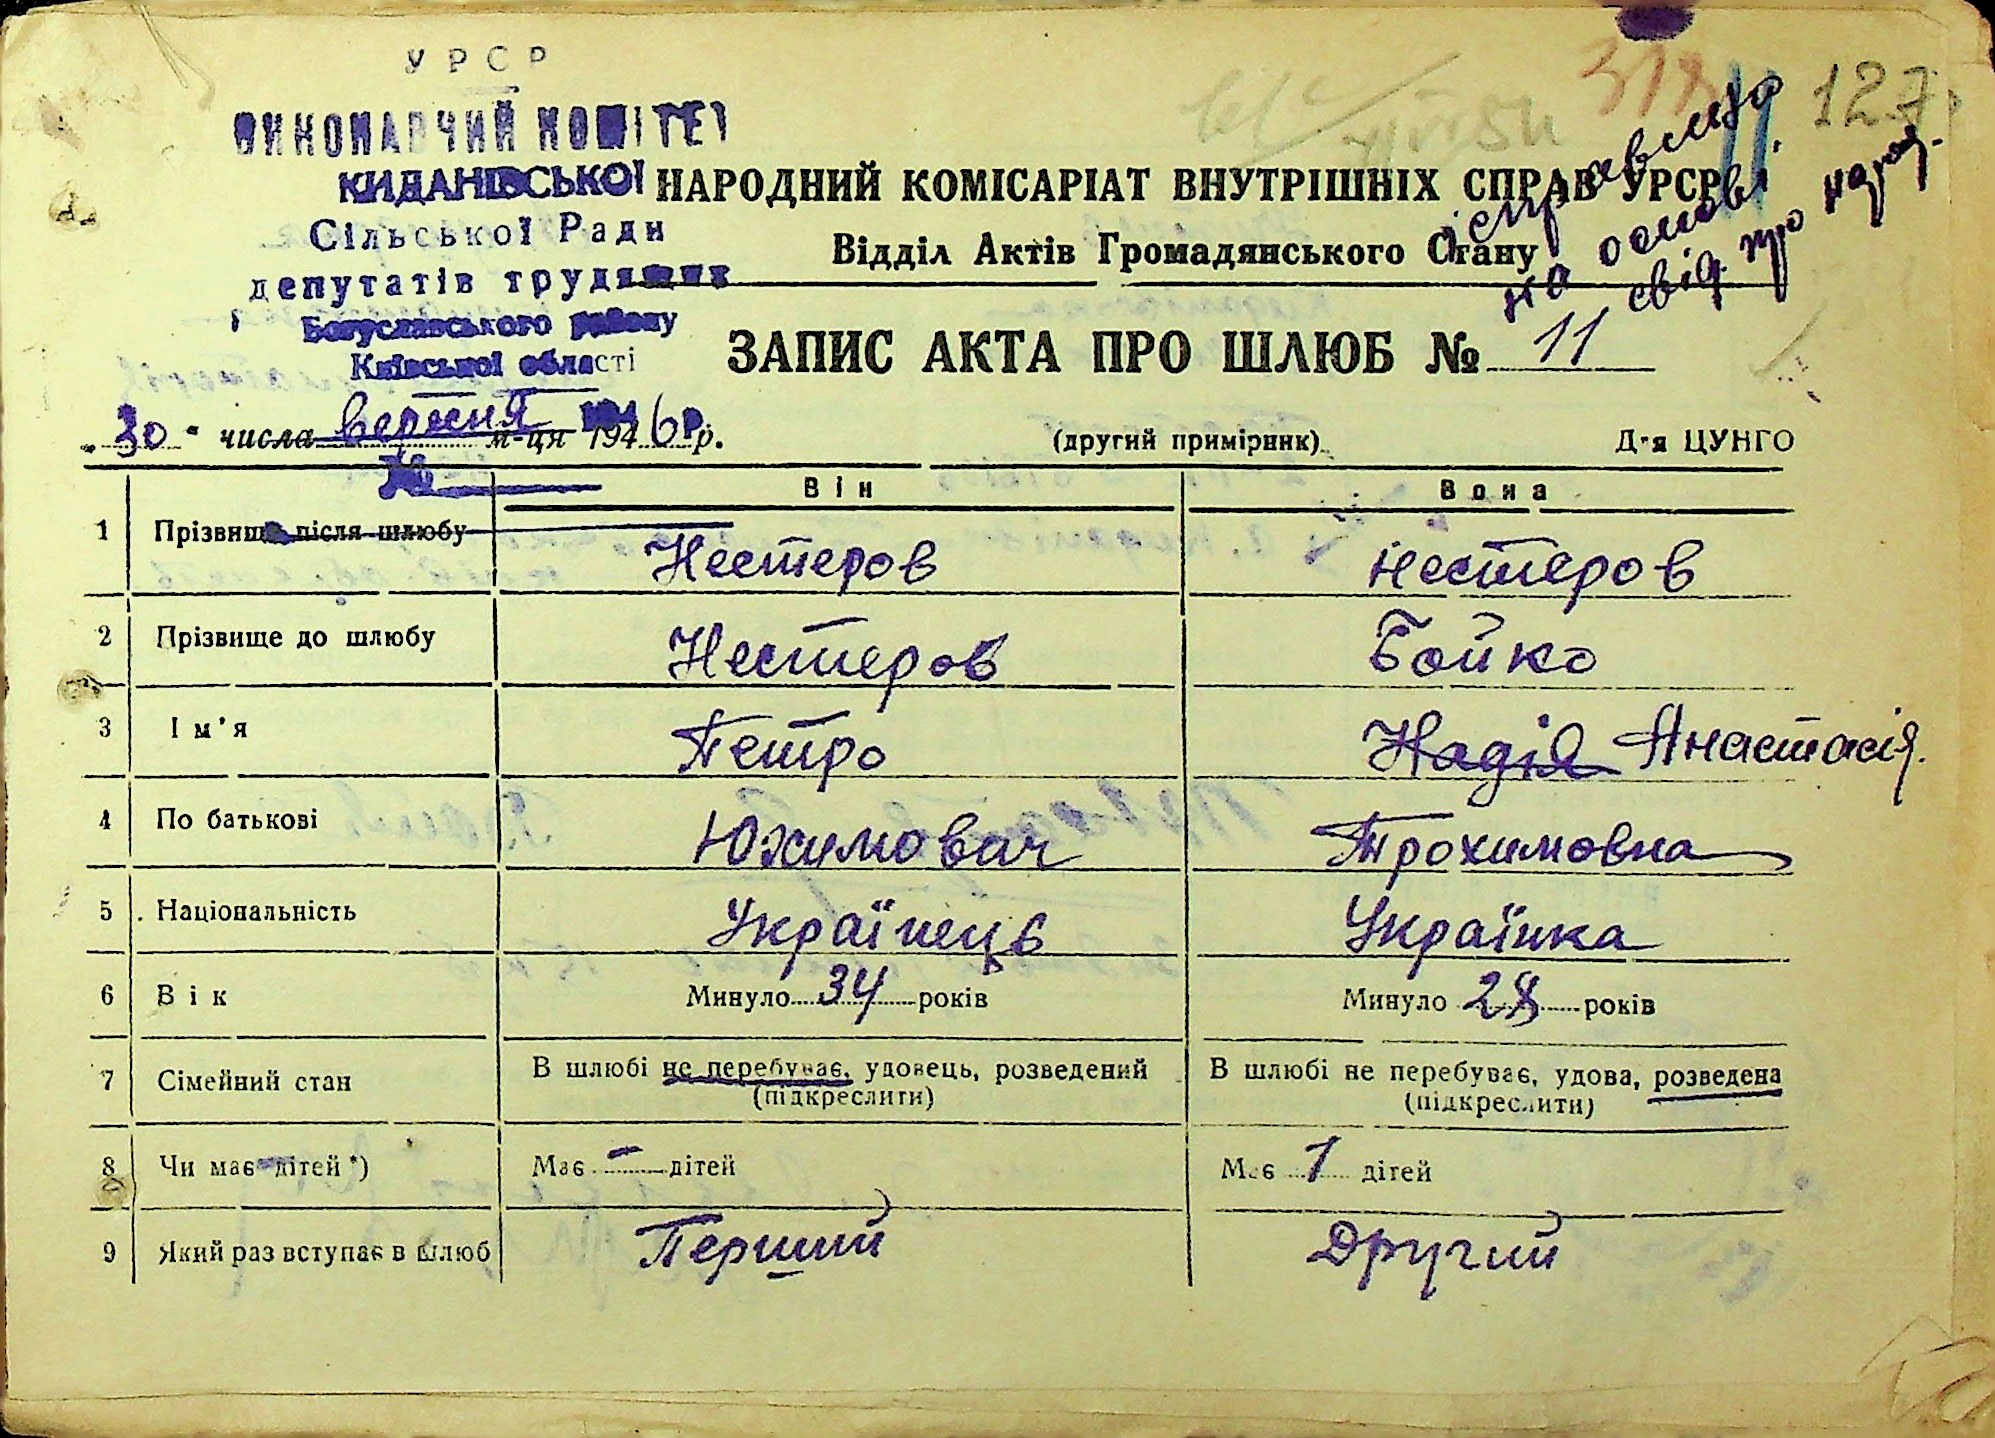 УРСР
127
ВИКОНАВЧИЙ КОМІТЕТ
КИДАНІВСЬКОЇ
Сільської Ради
депутатів трудящих
Богуславського району
Київської області
ісправлено
на основі
свід. про народ.
НАРОДНИЙ КОМІСАРІАТ ВНУТРІШНІХ СПРАВ УРСР
Відділ Актів Громадянського Стану
ЗАПИС АКТА ПРО ШЛЮБ № 11
„30" числа вересня м-ця 1946 р.
(другий примірник)
Д-я ЦУНГО
№
Він Вона
1 Прізвище після шлюбу Нестеров Нестеров
2 Прізвище до шлюбу Нестеров Бойко
3 Ім'я Петро Надія Анастасія.
4 По батькові Юхимович Трохимовна
5 Національність Українець Українка
6 Вік Минуло 34 років Минуло 28 років
7 Сімейний стан В шлюбі не перебуває, удовець, розведений В шлюбі не перебуває, удова, розведена
(підкреслити) (підкреслити)
8 Чи має дітей*) Має — дітей Має 1 дітей
9 Який раз вступає в шлюб Перший Другий